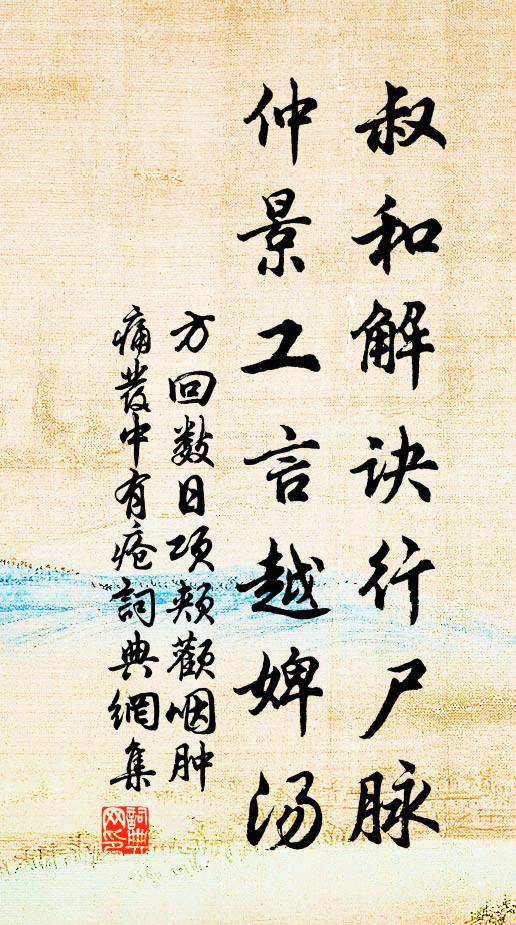 叔和解诀行尸脉
仲景工言越婢汤
方回数日项颊颧咽肿
痛发中有疮词典网集
詞典网印